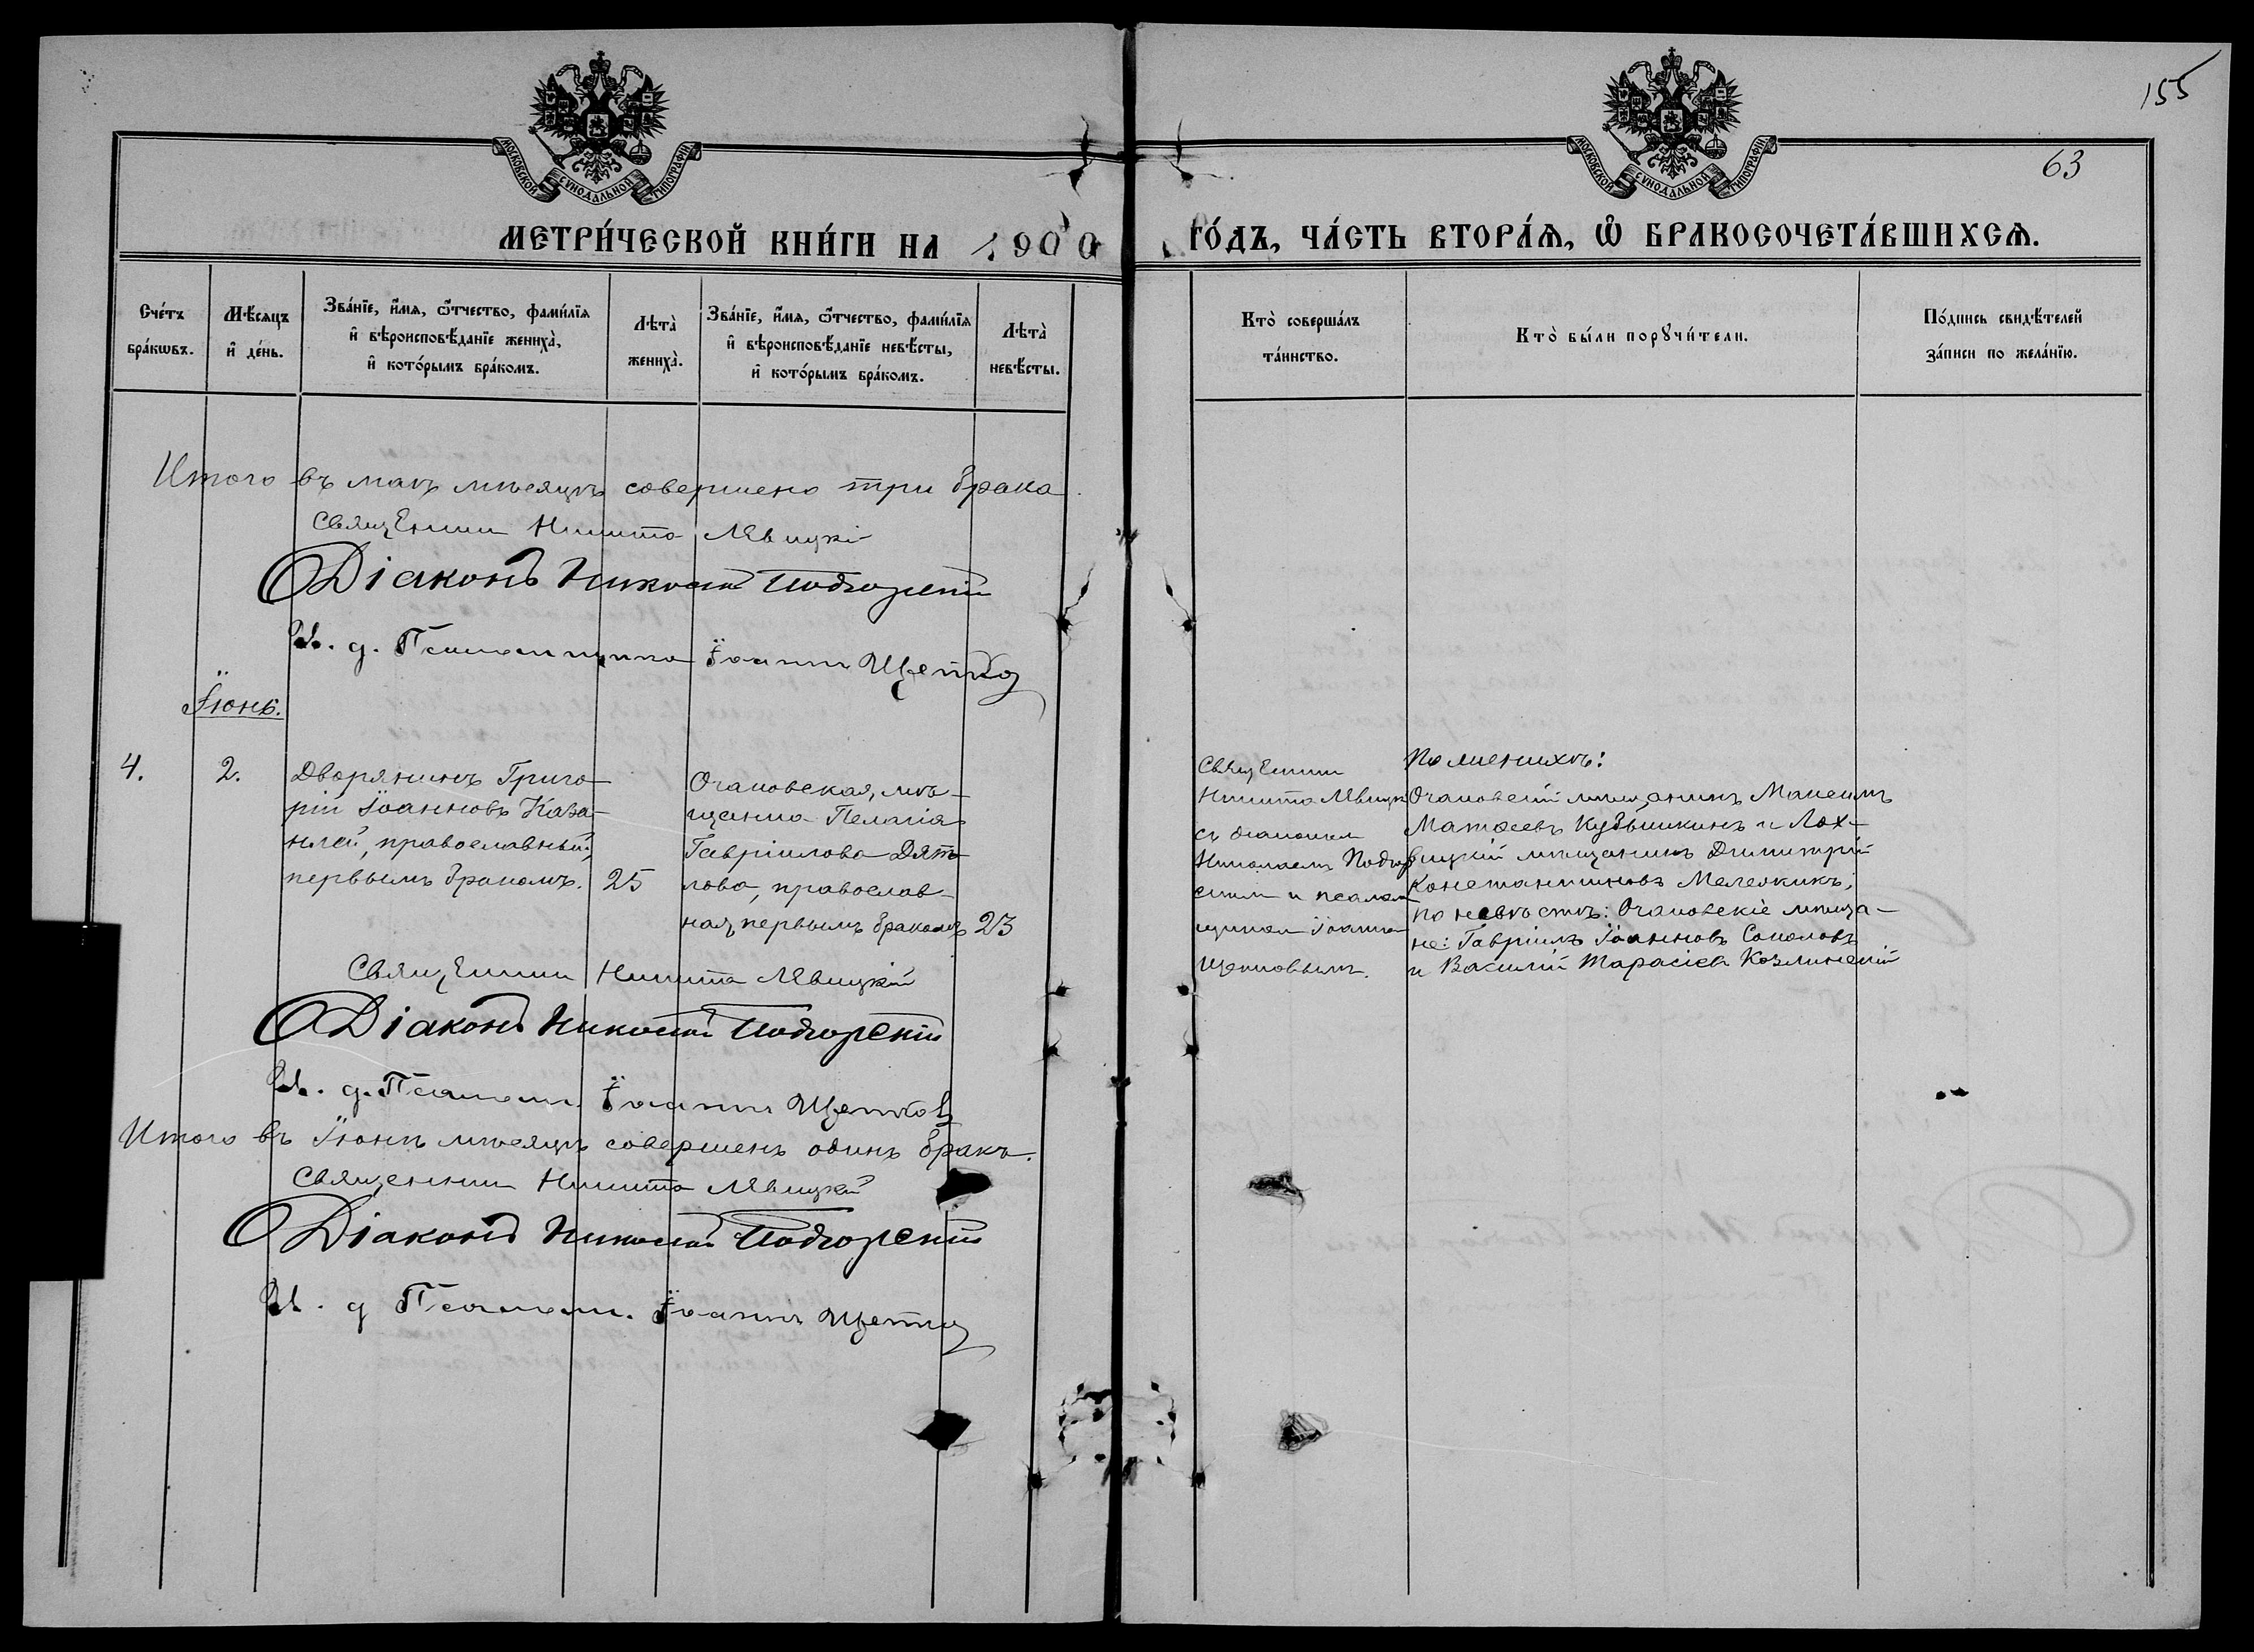 155
63
МОСКОВСКОЙ СѴНОДАЛЬНОЙ ТИПОГРАФІИ
МОСКОВСКОЙ СѴНОДАЛЬНОЙ ТИПОГРАФІИ
МЕТРИ́ЧЕСКОЙ КНИ́ГИ НА 1900 ГО́ДЪ, ЧА́СТЬ ВТОРА́Ѧ, Ѽ БРАКОСОЧЕТА́ВШИХСѦ.
Сче́тъ бра́кѡвъ.
Мѣ́сяцъ и҆ де́нь.
Зва́нїе, и҆́мѧ, ѻ҆́тчество, фами́лїѧ и҆ вѣроисповѣ́данїе жениха̀, и҆ кото́рымъ бра́комъ.
Лѣта̀ жениха̀.
Зва́нїе, и҆́мѧ, ѻ҆́тчество, фами́лїѧ и҆ вѣроисповѣ́данїе невѣ́сты, и҆ кото́рымъ бра́комъ.
Лѣта̀ невѣ́сты.
Кто̀ соверша́лъ та́инство.
Кто̀ бы́ли порꙋчи́тели.
По́дпись свидѣ́телей за́писи по жела́нїю.
Итого въ маѣ мѣсяцѣ совершено три брака.
Священник Никита Лѣвицкій
Діаконъ Николай Подгорскій
И. д. Псаломщика Іоаннъ Щепков
Іюнь.
4.
2.
Дворянинъ Григо-
рій Іоанновъ Каза-
нлей, православный,
первымъ бракомъ.
25
Очаковская, мѣ-
щанка Пелагія
Гавріилова Дят-
лова, православ-
ная, первымъ бракомъ
23
Священник
Никита Лѣвицкій
съ діакономъ
Николаемъ Подгор-
скимъ и псалом-
щикомъ Іоанномъ
Щепковымъ.
По женихѣ:
Очаковскій мѣщанинъ Максимъ
Матѳеевъ Кубышкинъ и Лох-
вицкій мѣщанинъ Димитрій
Константиновъ Мелешкинъ;
по невѣстѣ: Очаковскіе мѣща-
не: Гавріилъ Іоанновъ Соколовъ
и Василій Тарасіевъ Козлинскій
Священник Никита Лѣвицкій
Діаконъ Николай Подгорскій
И. д. Псалом. Іоаннъ Щепковъ
Итого въ Іюнѣ мѣсяцѣ совершенъ одинъ бракъ.
Священник Никита Лѣвицкій
Діаконъ Николай Подгорскій
И. д Псалом. Іоаннъ Щепков